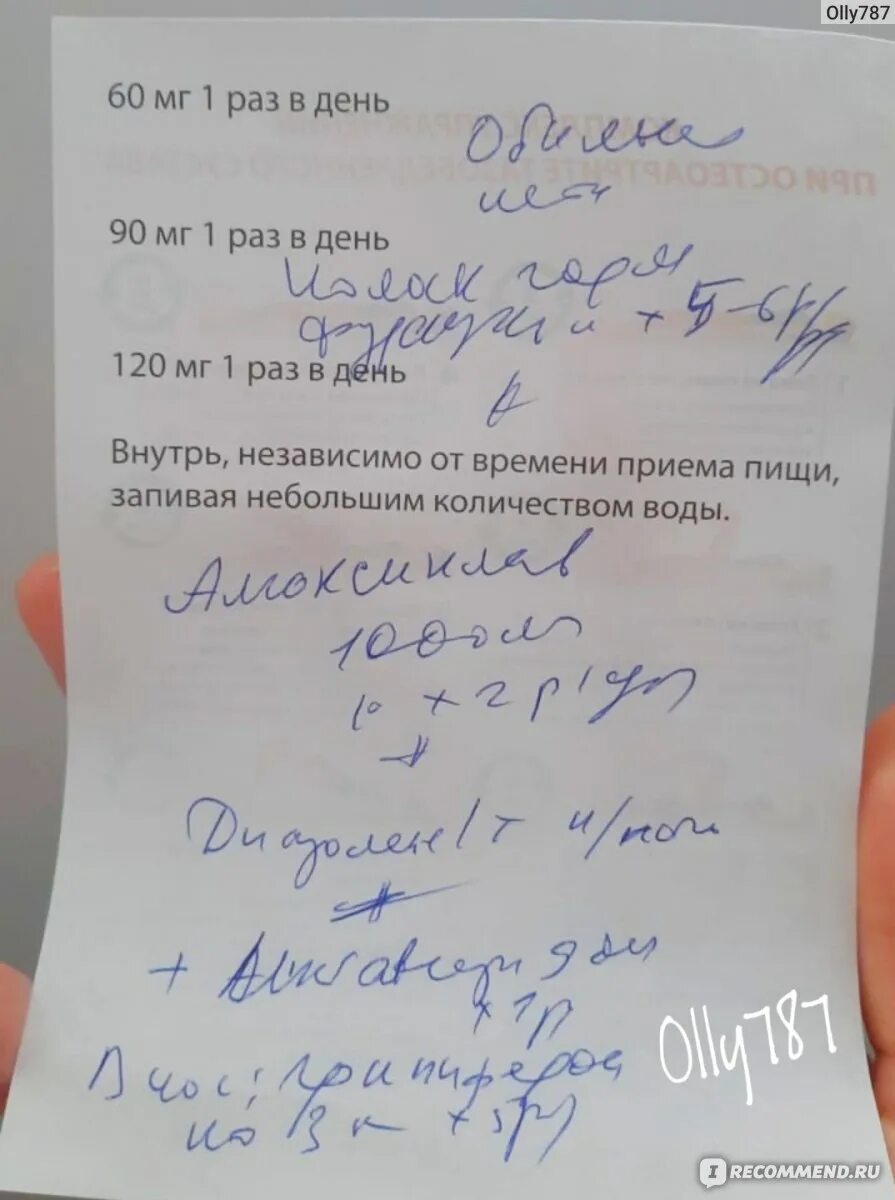 Olly787
60 мг 1 раз в день
Обильн
пить
90 мг 1 раз в день
Полоск горл
фурацилин + 5-6 р/д
120 мг 1 раз в день
Внутрь, независимо от времени приема пищи,
запивая небольшим количеством воды.
Амоксиклав
1000
1 × 2 р/д
Диазолин 1 т н/ночь
+
× 1 р
В нос: гриппферон
по 3 к × 5 р
Olly787
IRECOMMEND.RU